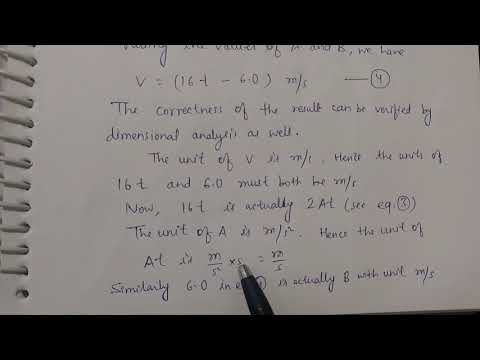 the values of A and B, we have
V = (16t - 6.0) m/s — ④
The correctness of the result can be verified by
dimensional analysis as well.
The unit of V is m/s. Hence the units of
16t and 6.0 must both be m/s
Now, 16t is actually 2At (see eq. ③)
The unit of A is m/s². Hence the unit of
At is m/s² × s = m/s
Similarly 6.0 in is actually B with unit m/s